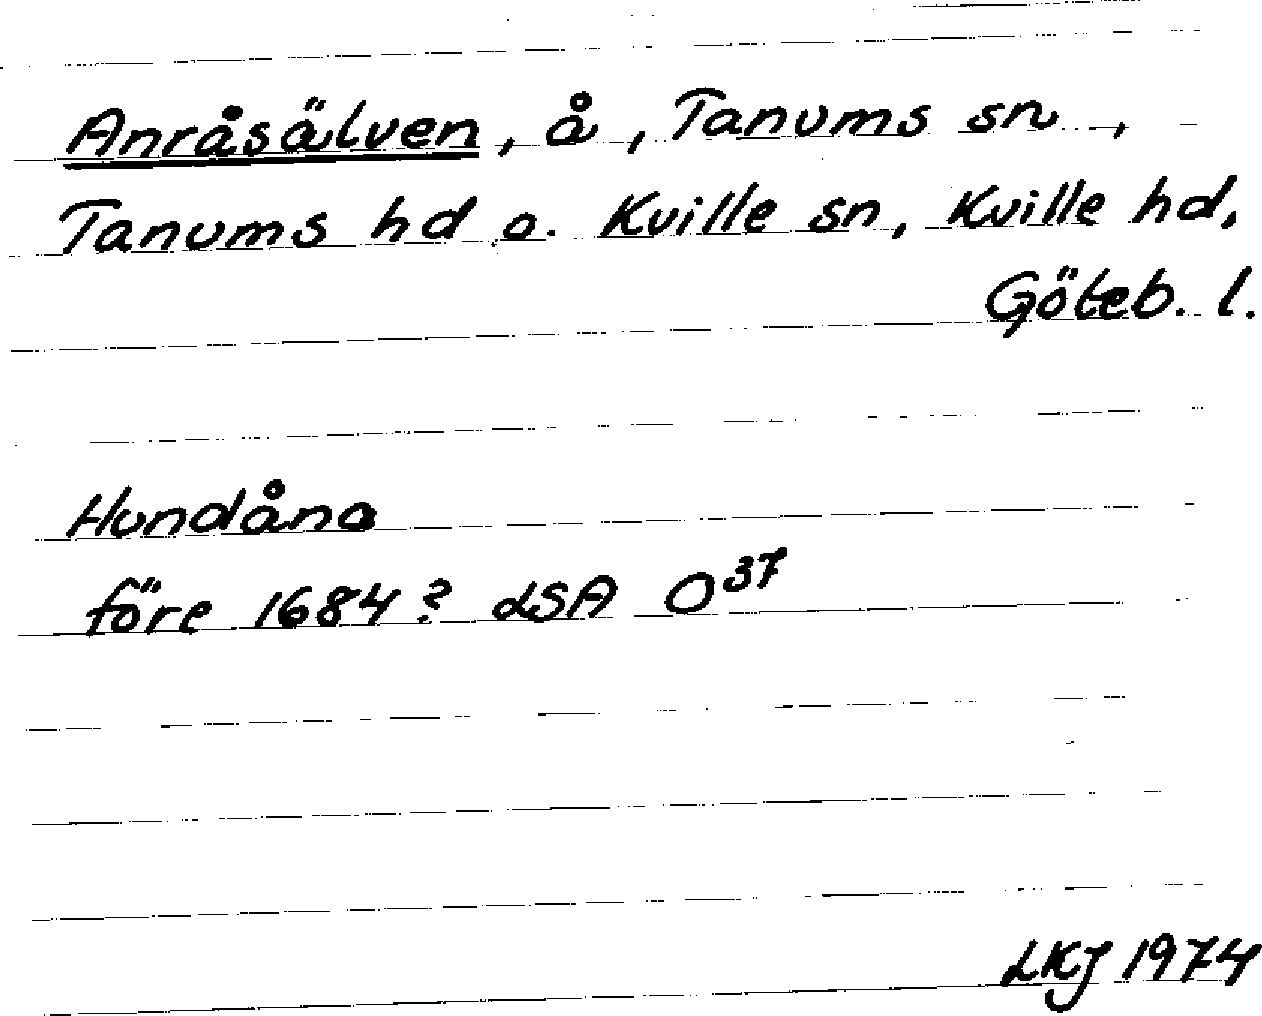 Anråsälven, å, Tanums sn,
Tanums hd o. Kville sn, Kville hd,
Göteb. l.
Hundåna
före 1684? LSA O³⁷
LKJ 1974